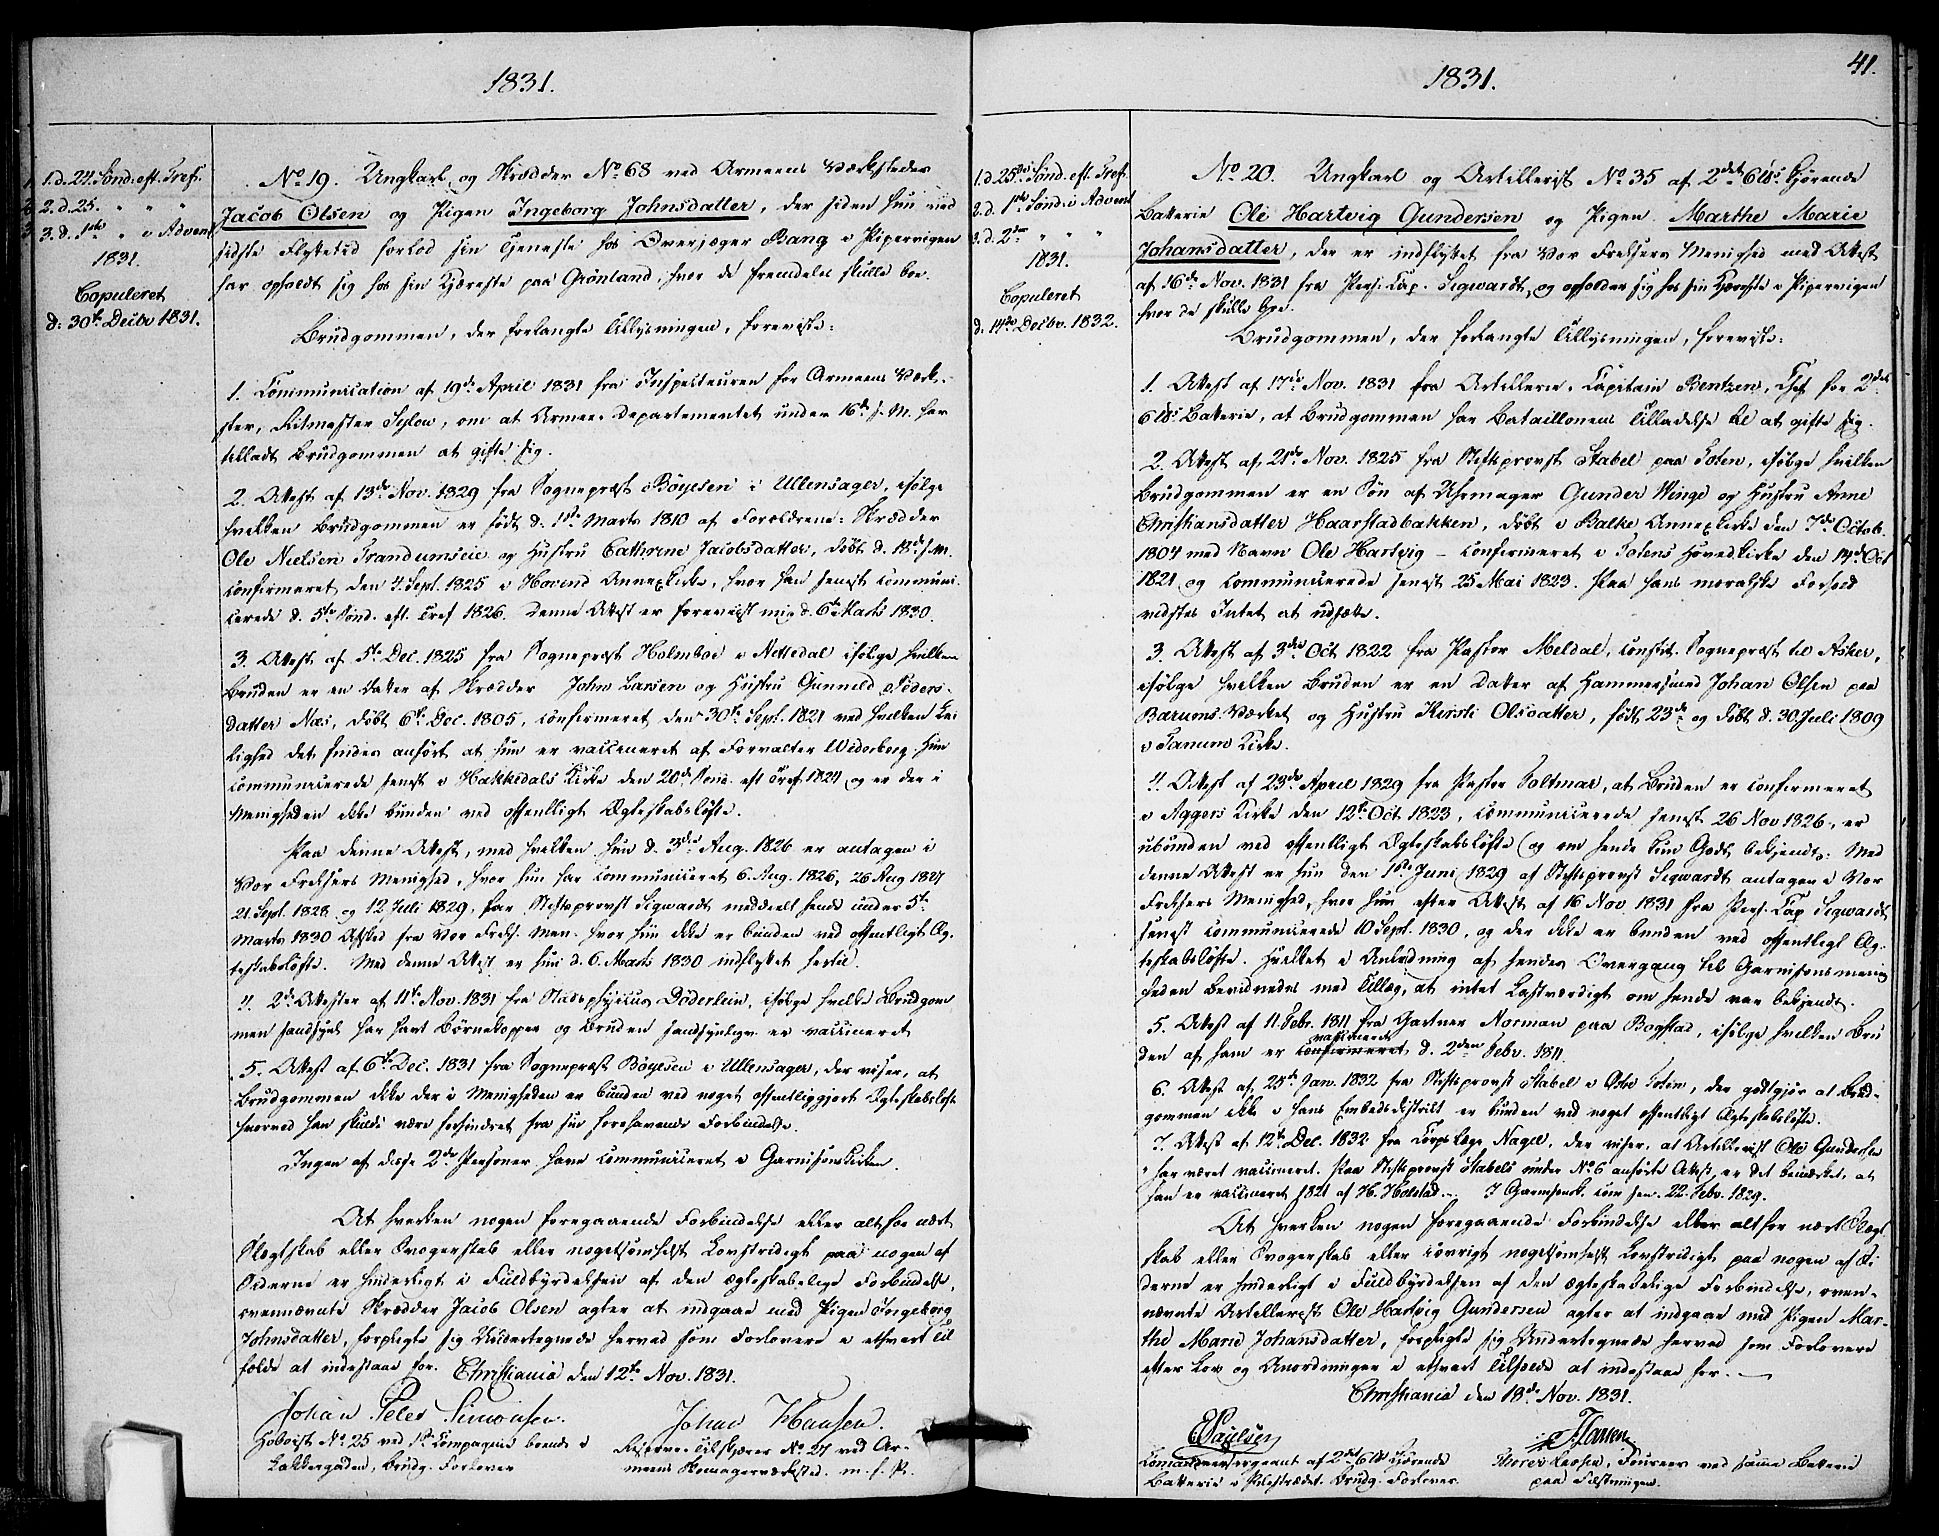 1831.
1.d. 24. Sønd. eft. Tref.
2.d. 25. " " "
3.d. 1ste " i Advent
1831.
Copuleret
d. 30te Decbr 1831.
No 19. Ungkarl og Skrædder No 68 ved Armeens Værksteder
Jacob Olsen og Pigen Ingeborg Johnsdatter, der siden hun ved
sidste Flyttetid forlod sin Tjeneste hos Overjæger Bang i Pipervigen
har opholdt sig hos sin Kjæreste paa Grønland, hvor de fremdeles skulle boe.
Brudgommen, der forlangte Tillysningen, foreviste:
1. Communication af 19de April 1831 fra Inspecteuren for Armeens Værk-
steder, Ritmester Seylow, om at Armee-Departementet under 16de s. M. har
tilladt Brudgommen at gifte sig.
2. Attest af 13de Nov. 1829 fra Sognepræst Bøyesen i Ullensager, ifølge
hvilken Brudgommen er født d. 1ste Marts 1810 af Forældrene: Skrædder
Ole Nielsen Trandumseie og Hustru Cathrine Jacobsdatter, døbt d. 18de s. M.
confirmeret den 4. Sept. 1825 i Hovind Annexkirke, hvor han senest communi-
cerede d. 5te Sønd. eft. Tref 1826. Denne Attest er forevist mig d. 6te Marts 1830.
3. Attest af 5te Dec. 1825 fra Sognepræst Holmboe i Nittedal ifølge hvilken
Bruden er en Datter af Skrædder John Larsen og Hustru Gunnild Peders-
datter Næs, døbt 6te Dec. 1805, confirmeret den 30te Sept. 1821 ved hvilken Lei
lighed det findes anført at hun er vaccineret af Forvalter Wederberg. Hun
communicerede senest i Hakkedals Kirke den 20de Sønd. eft Tref 1824 og er der i
Menigheden ikke bunden ved offentligt Ægteskabsløfte.
Paa denne Attest, med hvilken hun d. 3die Aug. 1826 er antagen i
Vor Frelsers Menighed, hvor hun har communiceret 6. Aug. 1826, 26 Aug 1827
21. Sept. 1828 og 12 Juli 1829, har Stiftsprovst Sigwardt meddeelt hende under 5te
Marts 1830 Afsked fra Vor Frels. Men. hvor hun ikke er bunden ved offentligt Æg-
teskabsløfte. Med denne Attest er hun d. 6. Marts 1830 indflyttet hertil.
4. 2de Attester af 11te Nov. 1831 fra Stadsphysicus Døderlein, ifølge hvilke Brudgom
men sandsynl. har havt Børnekopper og Bruden sandsynligv. er vaccineret
5. Attest af 6te Dec. 1831 fra Sognepræst Bøyesen i Ullensager, der viser, at
Brudgommen ikke der i Menigheden er bunden ved noget offentliggjort Ægteskabsløfte
hvorved han skulde være forhindret fra sin forehavende Forbindelse.
Ingen af disse 2de Personer have communiceret i Garnisonskirken.
At hverken nogen foregaaende Forbindelse eller altfor nært
Slægtskab eller Svogerskab eller nogetsomhelst Lovstridigt paa nogen af
Siderne er hinderligt i Fuldbyrdelsen af den ægteskabelige Forbindelse,
ovennævnte Skrædder Jacob Olsen agter at indgaae med Pigen Ingeborg
Johnsdatter, forpligte sig Undertegnede herved som Forlovere i ethvert Til
fælde at indestaae for. Christiania den 12te Nov. 1831.
Johan Peter Simonsen. Johan Hansen.
Hoboist No 25 ved 1ste Compagnie boende i Reserve-Tilskjærer No 27 ved Ar-
Lakkergaden, Brudg. Forlover meens Skomagerværksted. m. f. P.
1831.
41.
1.d. 25de Sønd. eft. Tref.
2.d. 1ste Sønd i Advent
3.d. 2den " " "
1831.
Copuleret
d. 14de Decbr. 1832.
No 20. Ungkarl og Artillerist No 35 af 2det 6 lds kjørende
Batterie Ole Hartvig Gundersen og Pigen Marthe Marie
Johansdatter, der er indflyttet fra Vor Frelsers Menighed med Attest
af 16de Nov. 1831 fra Pers. Cap. Sigwardt, og opholder sig hos sin Kjæreste i Pipervigen
hvor de skulle boe.
Brudgommen, der forlangte Tillysningen, foreviste:
1. Attest af 17de Nov. 1831 fra Artillerie-Capitain Bentzen, Chef for 2det
6 lds Batterie, at Brudgommen har Bataillonens Tilladelse til at gifte sig.
2. Attest af 21de Nov. 1825 fra Stiftsprovst Stabel paa Toten, ifølge hvilken
Brudgommen er en Søn af Uhrmager Gunder Winge og Hustru Anne
Christiansdatter Haarstadbakken, døbt i Balke Annexkirke den 7de Octob.
1804 med Navn Ole Hartvig – confirmeret i Totens Hovedkirke den 14de Oct
1821 og communicerede senest 25 Mai 1823. Paa hans moralske Forhold
vidstes Intet at udsætte.
3. Attest af 3die Oct 1822 fra Pastor Meldal, constit. Sognepræst til Asker,
ifølge hvilken Bruden er en Datter af Hammersmed Johan Olsen paa
Bærums-Værket og Hustru Kirsti Olsdatter, født 23de og døbt d. 30 Juli 1809
i Tanum Kirke.
4. Attest af 23de April 1829 fra Pastor Voltmar, at Bruden er confirmeret
i Aggers Kirke den 12te Oct 1823, communicerede senest 26 Nov 1826, er
ubunden ved offentligt Ægteskabsløfte (og om hende kun Godt bekjendt. Med
denne Attest er hun den 1ste Juni 1829 af Stiftsprovst Sigwardt antagen i Vor
Frelsers Menighed, hvor hun efter Attest af 16 Nov 1831 fra Pers. Cap Sigwardt
senest communicerede 10 Sept. 1830, og der ikke er bunden ved offentligt Æg-
teskabsløfte. Hvilket i Anledning af hendes Overgang til Garnisonsmenig
heden bevidnedes med Tillæg, at intet Lastværdigt om hende var bekjendt.
5. Attest af 11. Febr. 1811 fra Gartner Norman paa Bogstad, ifølge hvilken Bru
den af ham er confirmeret vaccineret d. 2den Febr. 1811.
6. Attest af 25de Jan. 1832 fra Stiftsprovst Stabel i Østre Toten, der godtgjør at Brud-
gommen ikke i hans Embedsdistrict er bunden ved noget offentligt Ægteskabsløfte.
7. Attest af 12te Dec. 1832 fra Corpslæge Nagel, der viser, at Artillerist Ole Gundersen
har været vaccineret. Paa Stiftsprovst Stabels under No 6 anførte Attest, er det bemærket, at
han er vaccineret 1821 af H. Holstad. – I Garnisonsk. com sen. 22. Febr. 1829.
At hverken nogen foregaaende Forbindelse eller altfor nært Slægt
skab eller Svogerskab eller iøvrigt nogetsomhelst Lovstridigt paa nogen af Si
derne er hinderligt i Fuldbyrdelsen af den ægteskabelige Forbindelse, oven-
nævnte Artillerist Ole Hartvig Gundersen agter at indgaae med Pigen Mar-
the Marie Johansdatter, forpligte sig Undertegnede herved som Forlovere
efter Lov og Anordninger i ethvert Tilfælde at indestaae for. –
Christiania den 18de Nov. 1831.
E Paulsen T Larsen
Commandeersergeant af 2det 6 lds kjørende Thorer Larsen, Foureer ved samme Batterie
Batterie i Pilestrædet. Brudg. Forlover. paa Fæstningen.